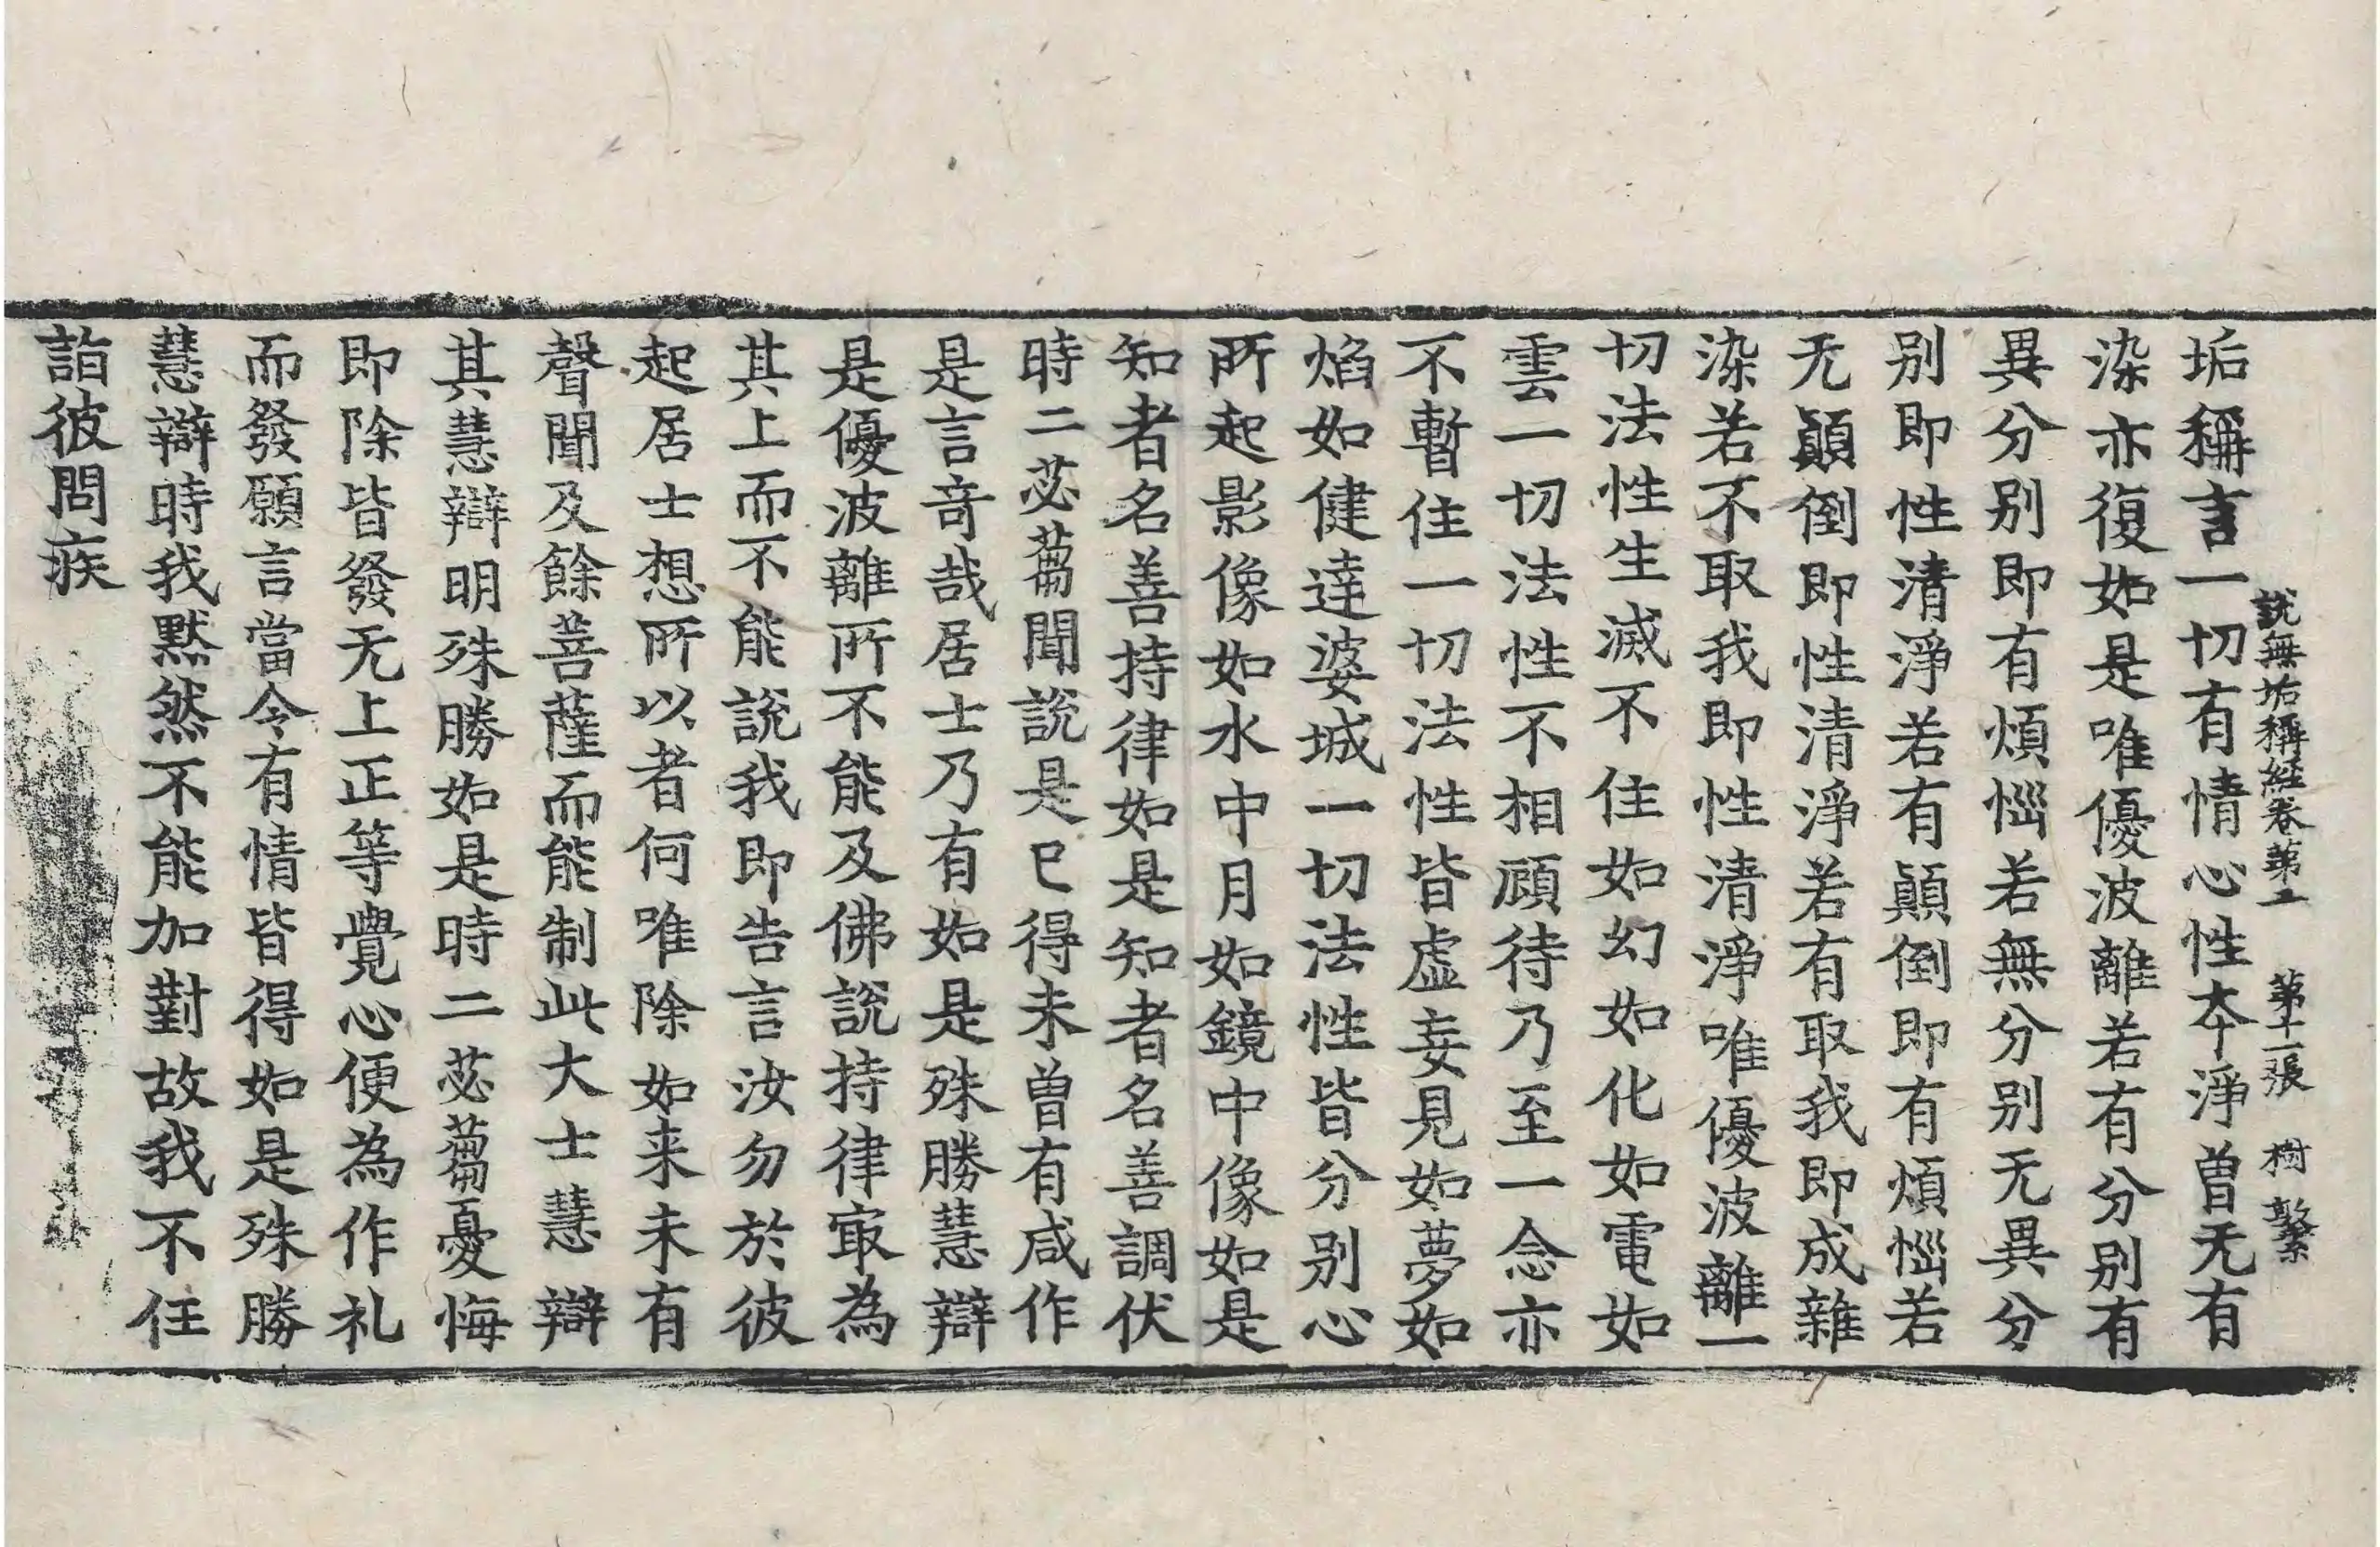 說無垢稱経卷第二 第十一張 樹 繁
垢稱言一切有情心性夲淨曽无有
染亦復如是唯優波離若有分別有
異分別即有煩惱若無分別无異分
別即性清淨若有顛倒即有煩惱若
无顛倒即性清淨若有取我即成雜
染若不取我即性清淨唯優波離一
切法性生滅不住如幻如化如電如
雲一切法性不相顧待乃至一念亦
不暫住一切法性皆虛妄見如夢如
焰如健達婆城一切法性皆分別心
所起影像如水中月如鏡中像如是
知者名善持律如是知者名善調伏
時二苾蒭聞說是已得未曽有咸作
是言奇哉居士乃有如是殊勝慧辯
是優波離所不能及佛說持律冣為
其上而不能說我即告言汝勿於彼
起居士想所以者何唯除如来未有
聲聞及餘菩薩而能制此大士慧辯
其慧辯明殊勝如是時二苾蒭憂悔
即除皆發无上正等覺心便為作礼
而發願言當令有情皆得如是殊勝
慧辯時我默然不能加對故我不任
詣彼問疾